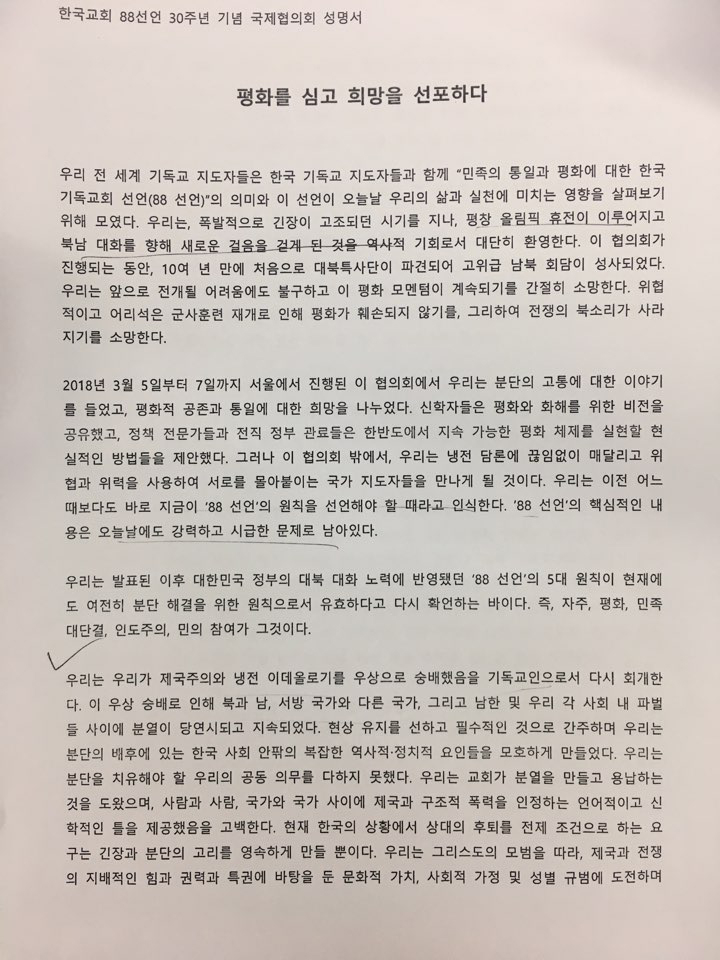 한국교회 88선언 30주년 기념 국제협의회 성명서
평화를 심고 희망을 선포하다
우리 전 세계 기독교 지도자들은 한국 기독교 지도자들과 함께 “민족의 통일과 평화에 대한 한국
기독교회 선언(88 선언)”의 의미와 이 선언이 오늘날 우리의 삶과 실천에 미치는 영향을 살펴보기
위해 모였다. 우리는, 폭발적으로 긴장이 고조되던 시기를 지나, 평창 올림픽 휴전이 이루어지고
북남 대화를 향해 새로운 걸음을 걷게 된 것을 역사적 기회로서 대단히 환영한다. 이 협의회가
진행되는 동안, 10여 년 만에 처음으로 대북특사단이 파견되어 고위급 남북 회담이 성사되었다.
우리는 앞으로 전개될 어려움에도 불구하고 이 평화 모멘텀이 계속되기를 간절히 소망한다. 위협
적이고 어리석은 군사훈련 재개로 인해 평화가 훼손되지 않기를, 그리하여 전쟁의 북소리가 사라
지기를 소망한다.
2018년 3월 5일부터 7일까지 서울에서 진행된 이 협의회에서 우리는 분단의 고통에 대한 이야기
를 들었고, 평화적 공존과 통일에 대한 희망을 나누었다. 신학자들은 평화와 화해를 위한 비전을
공유했고, 정책 전문가들과 전직 정부 관료들은 한반도에서 지속 가능한 평화 체제를 실현할 현
실적인 방법들을 제안했다. 그러나 이 협의회 밖에서, 우리는 냉전 담론에 끊임없이 매달리고 위
협과 위력을 사용하여 서로를 몰아붙이는 국가 지도자들을 만나게 될 것이다. 우리는 이전 어느
때보다도 바로 지금이 ‘88 선언’의 원칙을 선언해야 할 때라고 인식한다. ‘88 선언’의 핵심적인 내
용은 오늘날에도 강력하고 시급한 문제로 남아있다.
우리는 발표된 이후 대한민국 정부의 대북 대화 노력에 반영됐던 ‘88 선언’의 5대 원칙이 현재에
도 여전히 분단 해결을 위한 원칙으로서 유효하다고 다시 확언하는 바이다. 즉, 자주, 평화, 민족
대단결, 인도주의, 민의 참여가 그것이다.
우리는 우리가 제국주의와 냉전 이데올로기를 우상으로 숭배했음을 기독교인으로서 다시 회개한
다. 이 우상 숭배로 인해 북과 남, 서방 국가와 다른 국가, 그리고 남한 및 우리 각 사회 내 파벌
들 사이에 분열이 당연시되고 지속되었다. 현상 유지를 선하고 필수적인 것으로 간주하며 우리는
분단의 배후에 있는 한국 사회 안팎의 복잡한 역사적·정치적 요인들을 모호하게 만들었다. 우리는
분단을 치유해야 할 우리의 공동 의무를 다하지 못했다. 우리는 교회가 분열을 만들고 용납하는
것을 도왔으며, 사람과 사람, 국가와 국가 사이에 제국과 구조적 폭력을 인정하는 언어적이고 신
학적인 틀을 제공했음을 고백한다. 현재 한국의 상황에서 상대의 후퇴를 전제 조건으로 하는 요
구는 긴장과 분단의 고리를 영속하게 만들 뿐이다. 우리는 그리스도의 모범을 따라, 제국과 전쟁
의 지배적인 힘과 권력과 특권에 바탕을 둔 문화적 가치, 사회적 가정 및 성별 규범에 도전하며